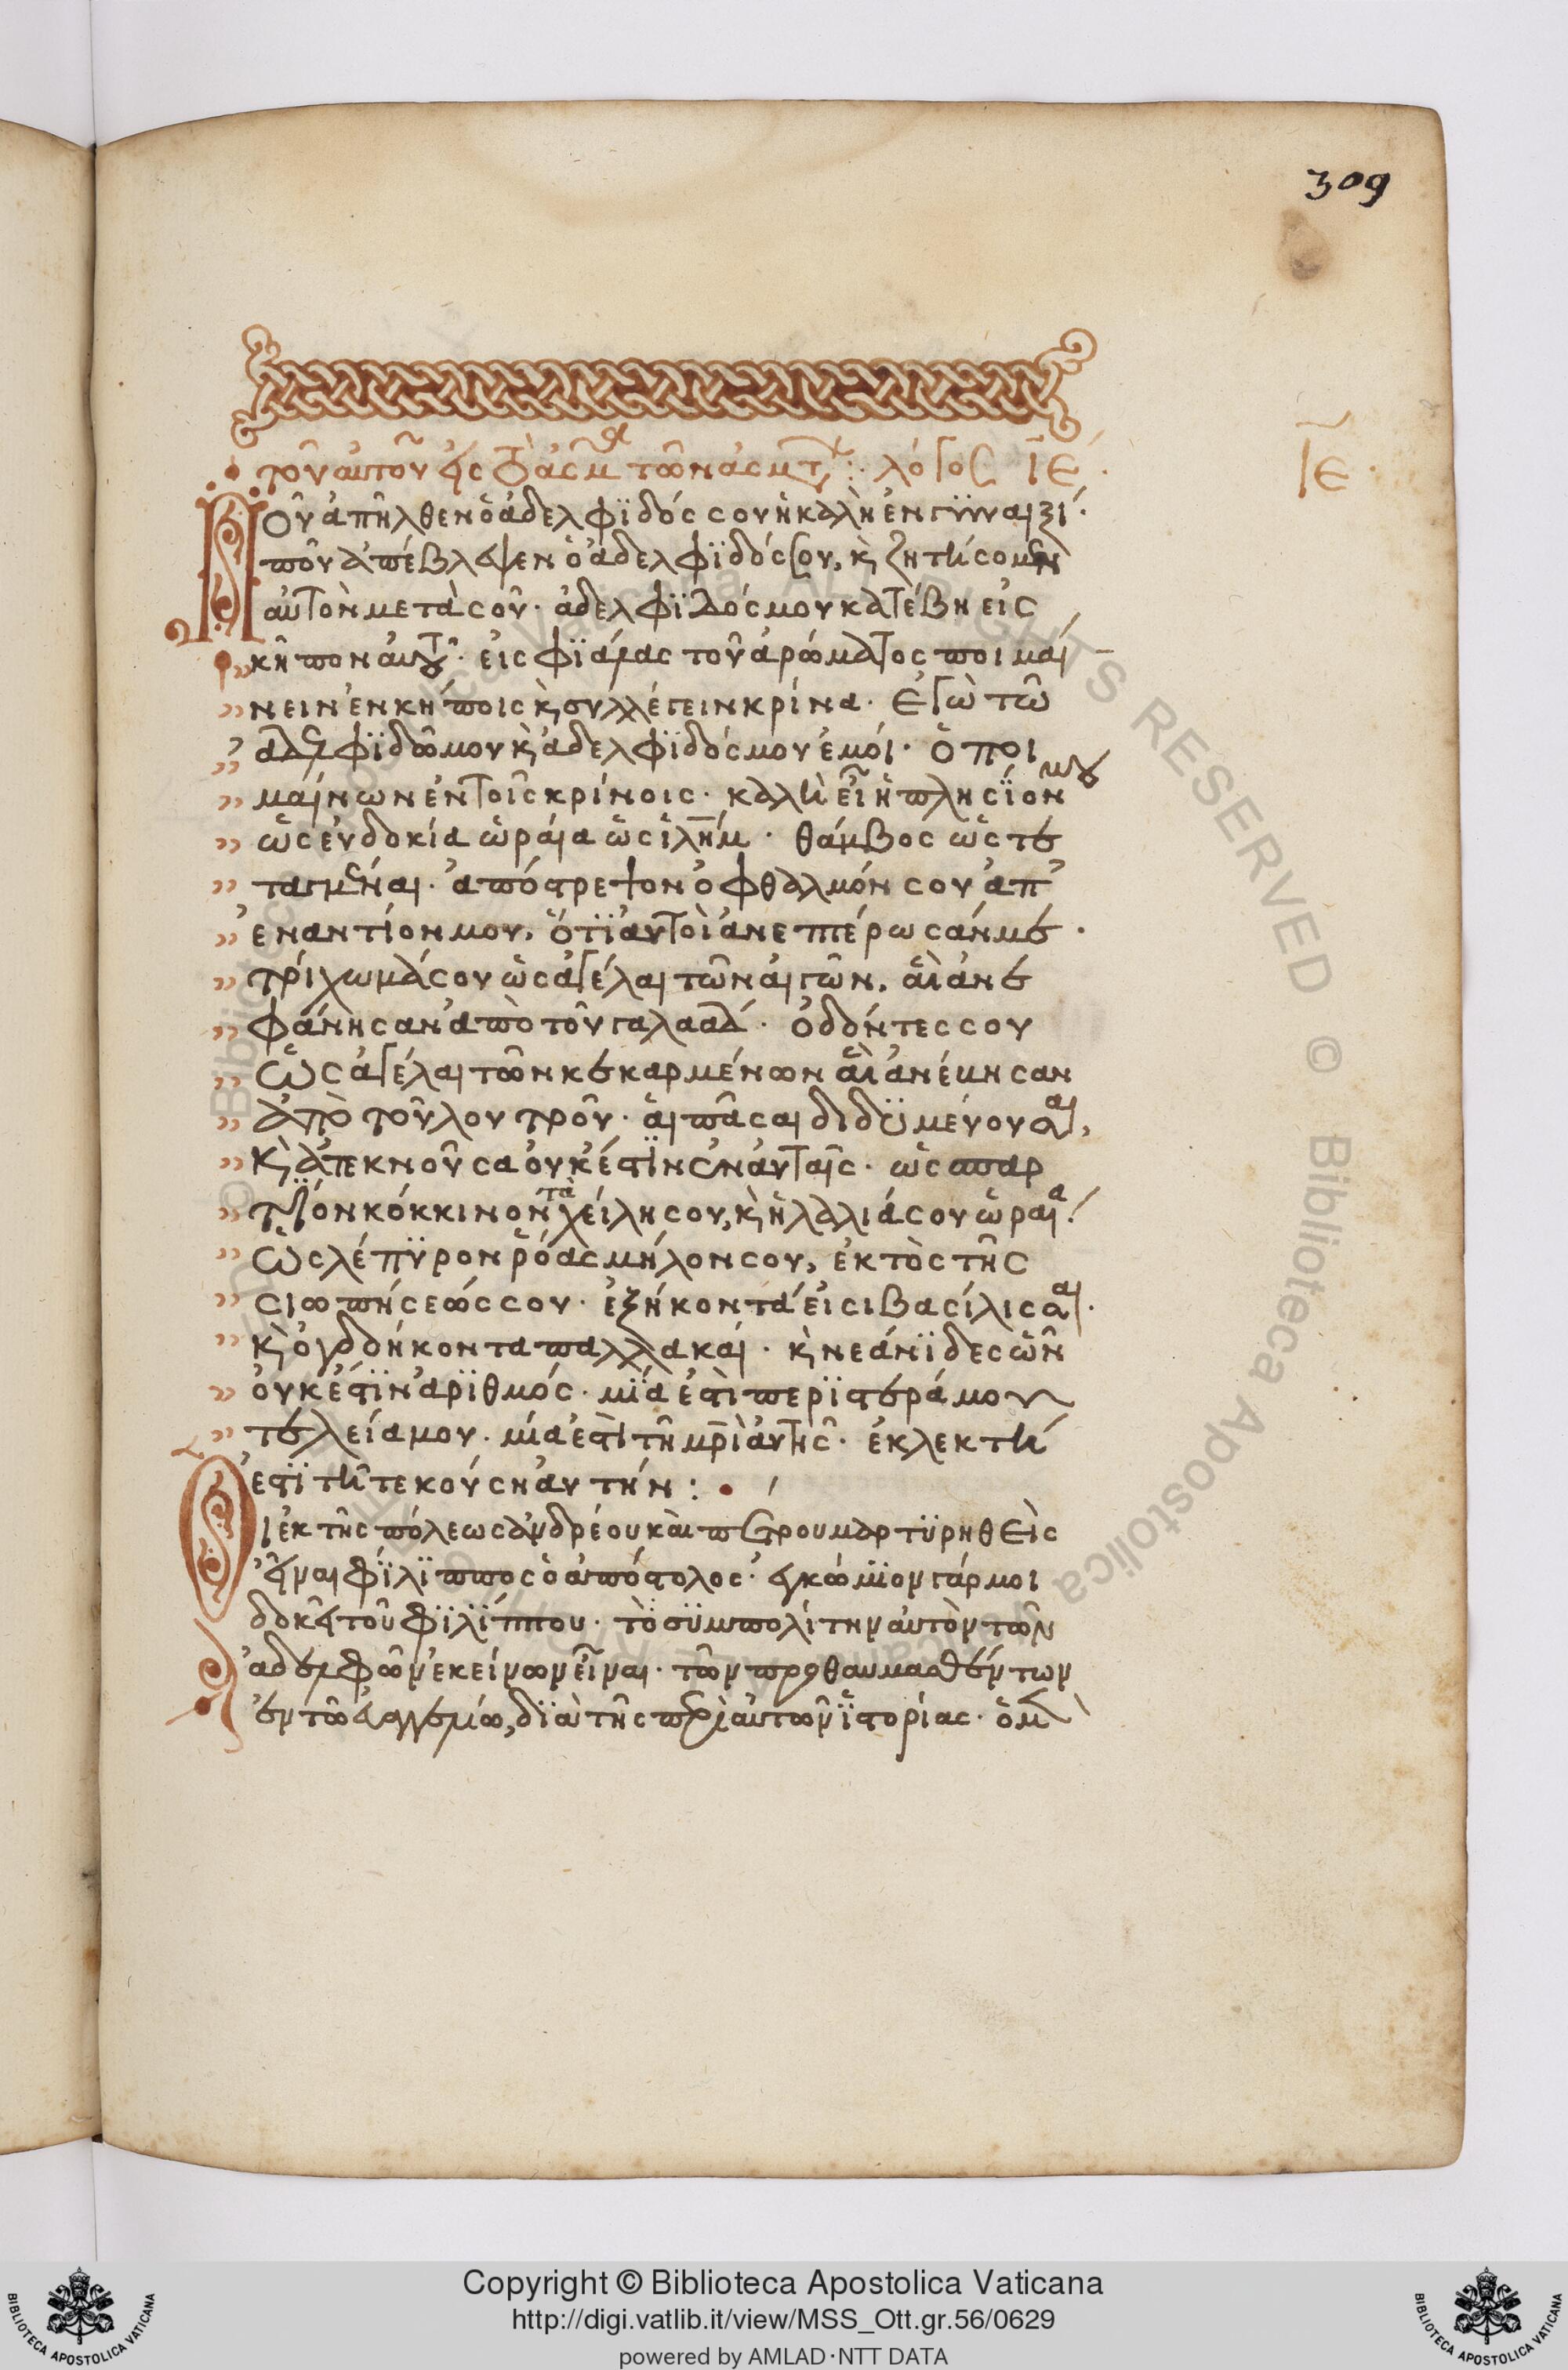 309
τοῦ αὐτοῦ εἰς τὸ ᾆσμα τῶν ἀσμάτ · λόγος ιε ·
ιε ·
Ποῦ ἀπῆλθεν ὁ ἀδελφϊδός σου ἡ καλὴ ἐν γυναιξί ·
ποῦ ἀπέβλεψεν ὁ ἀδελφϊδός σου, κ ζητήσομεν
αὐτὸν μετὰ σοῦ · ἀδελφϊδός μου κατέβη εἰς
κῆπον αὐτοῦ · εἰς φϊάλας τοῦ ἀρώματος ποιμαί
νειν ἐν κήποις κ συλλέγειν κρίνα · ἐγὼ τῶ
ἀδελφϊδῶ μου κ ἀδελφϊδός μου ἐμοί · ὁ ποι
μαίνων ἐν τοῖς κρίνοις · καλὴ εἶ ἡ πλησϊον μου
ὡς εὐδοκία ὡραία ὡς ἱλημ · θάμβος ὡς τε
ταγμέναι · ἀπόστρεψον ὀφθαλμόν σου ἀπ
ἐναντίον μου, ὅτϊ αὐτοὶ ἀνεπτέρωσάν με ·
τρίχωμά σου ὡς ἀγέλαι τῶν αἰγῶν, αἳ ἀνε
φάνησαν ἀπὸ τοῦ γαλαάδ · ὀδόντες σου
ὡς ἀγέλαι τῶν κεκαρμένων αἳ ἀνέβησαν
ἀπὸ τοῦ λουτροῦ · αἱ πᾶσαι διδϋμεύουσαι,
κ ἀτεκνοῦσα οὐκ ἔστϊν ἐν αὐταῖς · ὡς σπαρ
τΐον κόκκινον τὰ χείλη σου, κ ἡ λαλιά σου ὡραία
ὡς λέπϋρον ῥόας μῆλον σου, ἐκτὸς τῆς
σιωπήσεώς σου · ἑξήκοντά εἰσι βασίλισσαι ·
κ ὀγδοήκοντα παλλακαί · κ νεάνϊδες ὧν
οὐκ ἔστϊν ἀρϊθμός · μϊά ἐστι περϊστερά μου
τελεία μου · μία ἐστὶ τῆ μρι αὐτῆς · ἐκλεκτή
ἐστϊ τῆ τεκούση αὐτήν :
Οἱ ἐκ τῆς πόλεως ἀνδρέου καὶ πέτρου μαρτϋρηθεὶς
εἶναι φϊλϊππος ὁ ἀπόστολος · ἐγκώμϊον γάρ μοι
δοκεῖ τοῦ φϊλϊππου · τὸ σϋμπολίτην αὐτὸν τῶν
ἀδελφῶν ἐκείνων εἶναι · τῶν προθαυμασθέντων
ἐν τῶ εὐαγγελίω, δϊὰ τῆς περὶ αὐτῶν ἱστορίας · ὁ μ
Copyright © Biblioteca Apostolica Vaticana
http://digi.vatlib.it/view/MSS_Ott.gr.56/0629
powered by AMLAD·NTT DATA